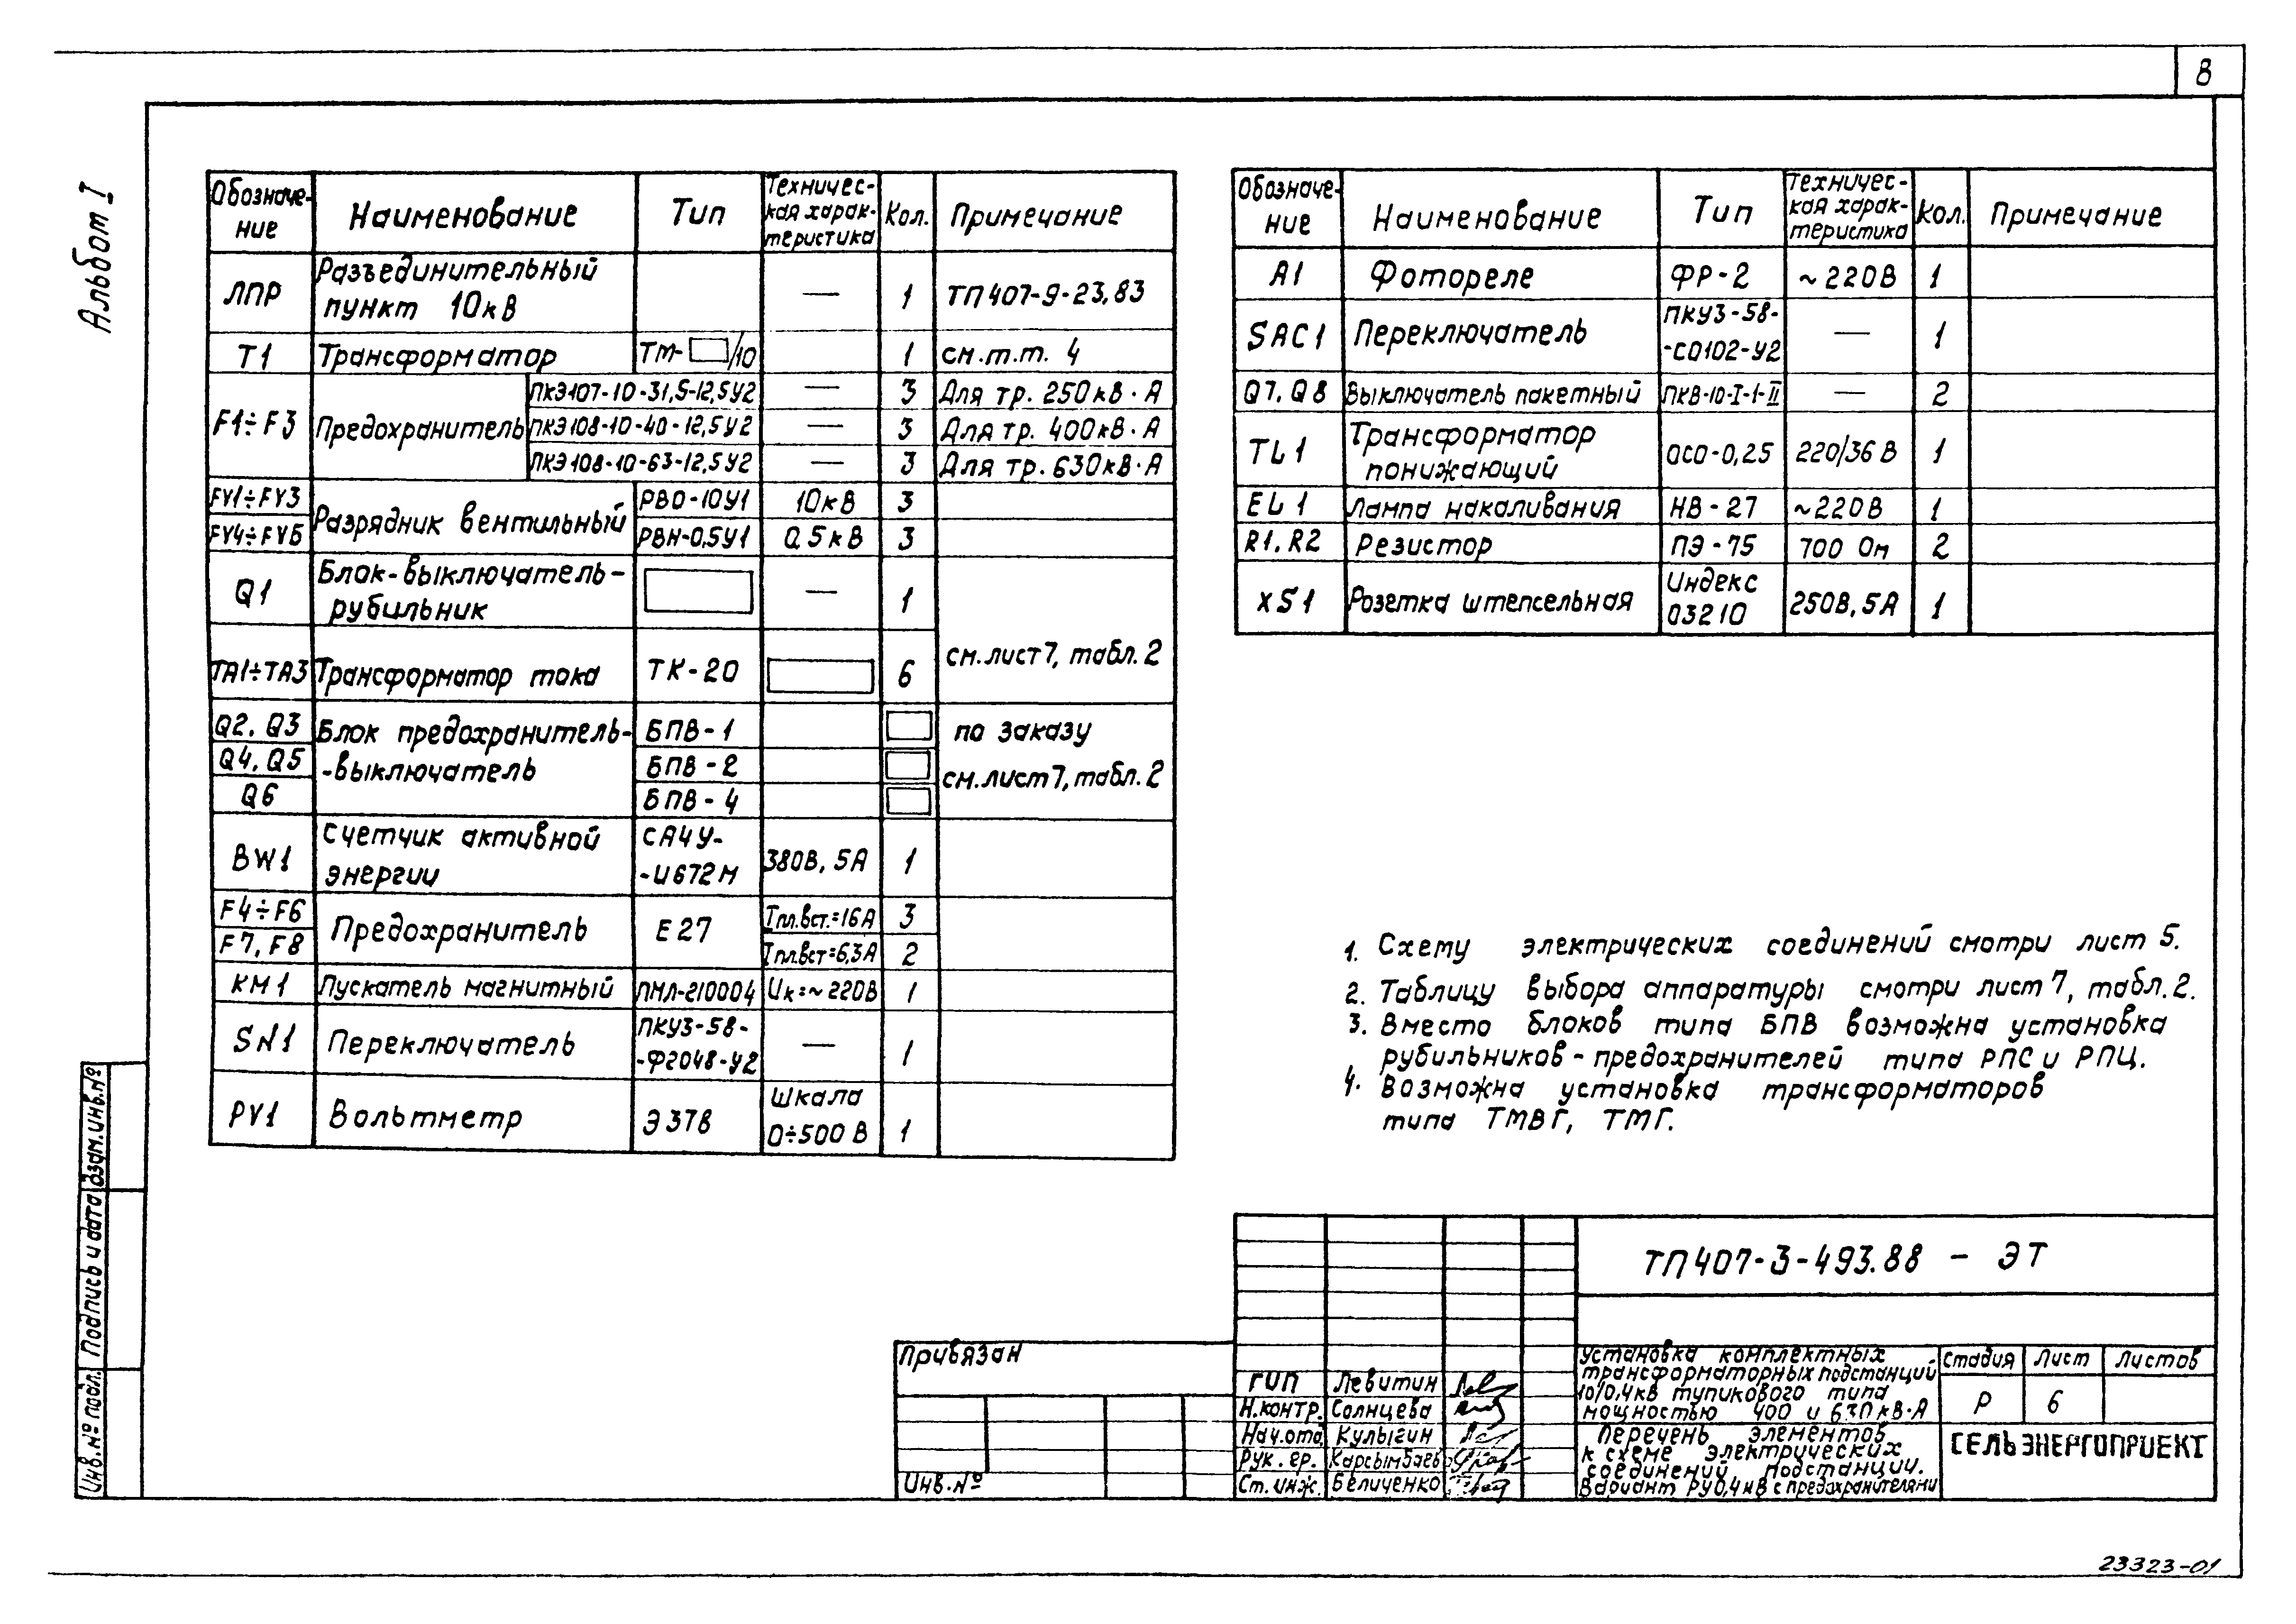 8
Альбом I
Обозначе- Наименование Тип Техничес- Кол. Примечание
ние кая харак-
теристика
ЛПР Разъединительный — 1 ТП 407-9-23,83
пункт 10кВ
Т1 Трансформатор ТМ- /10 1 см.т.т. 4
F1÷F3 Предохранитель ПКЭ107-10-31,5-12,5У2 — 3 Для тр. 250кВ·А
ПКЭ108-10-40-12,5У2 — 3 Для тр. 400кВ·А
ПКЭ108-10-63-12,5У2 — 3 Для тр. 630кВ·А
FV1÷FV3 Разрядник вентильный РВО-10У1 10кВ 3
FV4÷FV5 РВН-0,5У1 0.5кВ 3
Q1 Блок-выключатель- — 1
рубильник
ТА1÷ТА3 Трансформатор тока ТК-20 6 см.лист7, табл.2
Q2, Q3 Блок предохранитель- БПВ-1 по заказу
Q4, Q5 -выключатель БПВ-2 см.лист7, табл.2
Q6 БПВ-4
BW1 Счетчик активной СА4У- 380В, 5А 1
энергии -И672М
F4÷F6 Предохранитель Е27 Iпл.вст.=16А 3
F7, F8 Iпл.вст=6,3А 2
КМ1 Пускатель магнитный ПМЛ-210004 Uк=~220В 1
SN1 Переключатель ПКУ3-58- — 1
-Ф2048-У2
PV1 Вольтметр Э378 Шкала 1
0÷500 В
Обозначе- Наименование Тип Техничес- Кол. Примечание
ние кая харак-
теристика
А1 Фотореле ФР-2 ~220В 1
SAC1 Переключатель ПКУ3-58- — 1
-С0102-У2
Q7, Q8 Выключатель пакетный ПКВ-10-I-1-II — 2
TL1 Трансформатор ОСО-0,25 220/36 В 1
понижающий
EL1 Лампа накаливания НВ-27 ~220В 1
R1, R2 Резистор ПЭ-75 700 Ом 2
XS1 Розетка штепсельная Индекс 250В, 5А 1
03210
1. Схему электрических соединений смотри лист 5.
2. Таблицу выбора аппаратуры смотри лист 7, табл.2.
3. Вместо блоков типа БПВ возможна установка
рубильников-предохранителей типа РПС и РПЦ.
4. Возможна установка трансформаторов
типа ТМВГ, ТМГ.
ТП 407-3-493.88 - ЭТ
Привязан
Инв.№
ГИП Левитин
Н.контр. Солнцева
Нач.отд. Кулыгин
Рук. гр. Карсымбаев
Ст. инж. Величенко
Установка комплектных
трансформаторных подстанций
10/0,4кв тупикового типа
мощностью 400 и 630кВ·А
Перечень элементов
к схеме электрических
соединений подстанции.
Вариант РУ0,4кВ с предохранителями
Стадия Лист Листов
Р 6
СЕЛЬЭНЕРГОПРОЕКТ
Взам.инв.№
Подпись и дата
Инв.№ подл.
23323-01